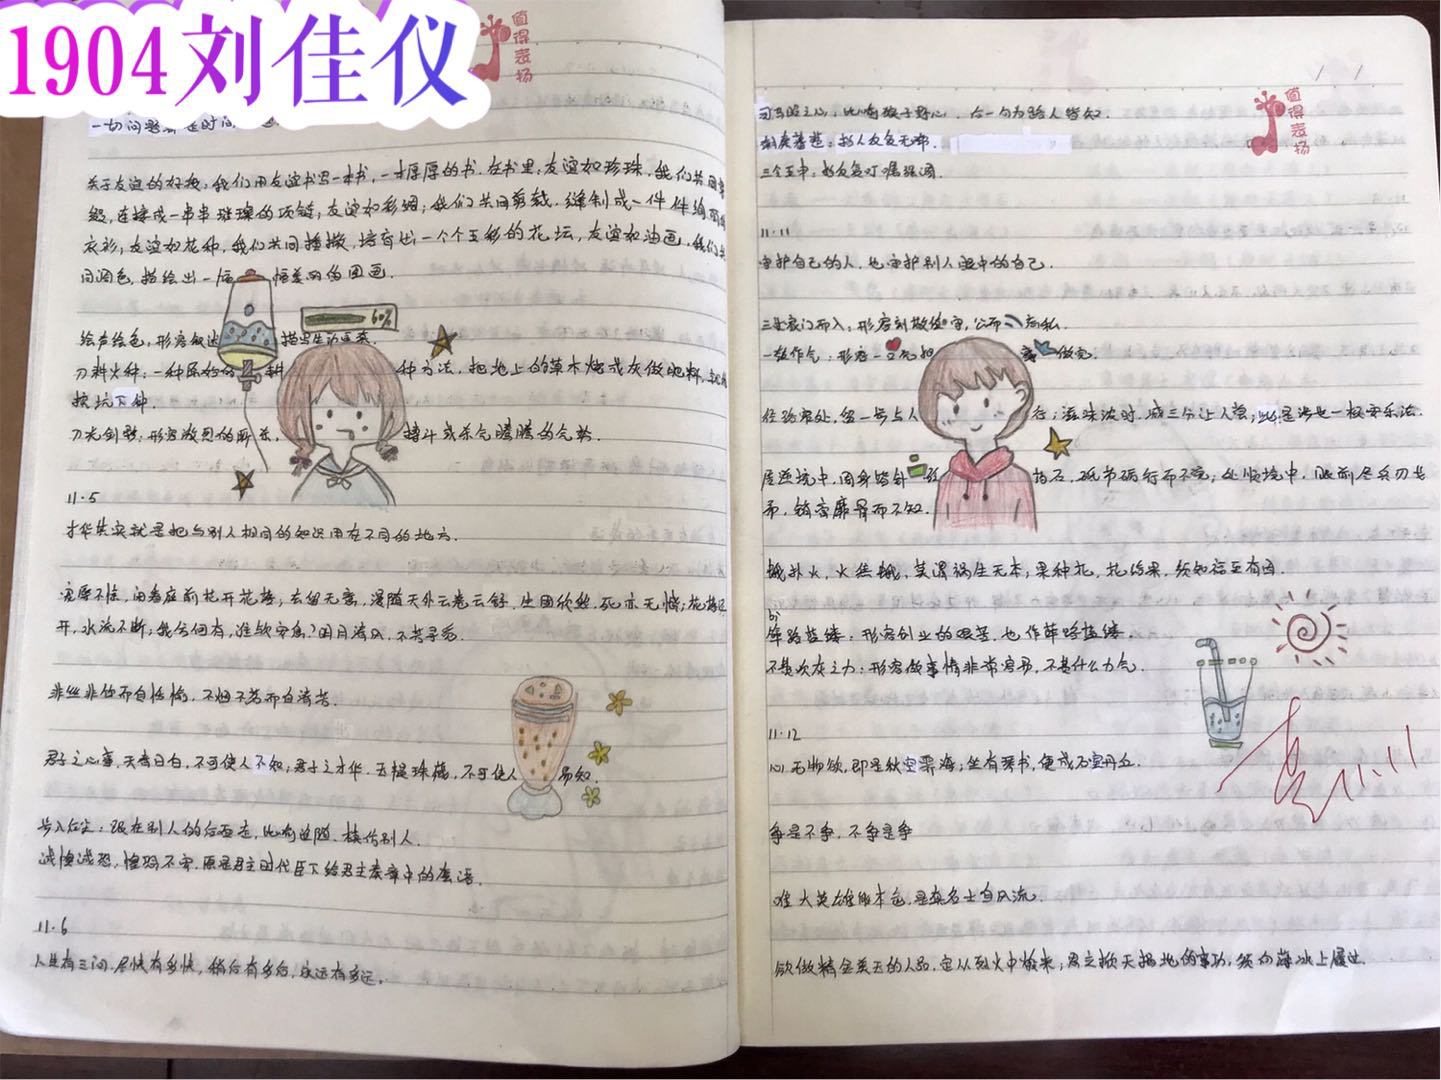 1904刘佳仪
值得表扬
一切问题 时间
关于友谊的好段：我们用友谊书写一本书，一本厚厚的书。在书里，友谊如珍珠，我们共同
缀，连接成一串串璀璨的项链；友谊如彩绸；我们共同剪裁，缝制成一件件绚丽的
衣衫；友谊如花种，我们共同播撒，培育出一个个五彩的花坛；友谊如油画，我们共
同调色，描绘出一幅 幅美丽的图画。
60%
绘声绘色：形容叙述 描写生动逼真。
刀耕火种：一种原始的耕 种方法，把地上的草木烧成灰做肥料，就地
挖坑下种。
刀光剑影：形容激烈的厮杀、 搏斗或杀气腾腾的气势。
11.5
才华其实就是把与别人相同的知识用在不同的地方。
宠辱不惊，闲看庭前花开花落；去留无意，漫随天外云卷云舒。生固欣然，死亦无憾；花落还
开，水流不断；我兮何有，谁欤安息？明月清风，不劳寻觅。
非丝非竹而自恬愉，不烟不茗而自清芬。
君子之心事，天青日白，不可使人不知；君子之才华，玉韫珠藏，不可使人 易知。
步入后尘：跟在别人的后面走，比喻追随、模仿别人。
诚惶诚恐，惶恐不安。原是君主时代臣下给君主奏章中的套语。
11.6
人生有三问，尽快有多快，稍后有多后，永远有多远。
值得表扬
司马昭之心：比喻狼子野心，后一句为路人皆知。
朝秦暮楚：指人反复无常。
三令五申：指反复叮嘱强调。
11.11
守护自己的人，也守护别人眼中的自己。
三过家门而入：形容刻 公而 忘私。
一鼓作气：形容一口气把 事 做完。
径路窄处，留一步与人 行；滋味浓时，减三分让人尝；此是涉世一极安乐法。
居逆境中，周身皆针 砭 药石，砥节砺行而不觉；处顺境中，眼前尽兵刃戈
矛，销膏靡骨而不知。
蛾扑火，火焦蛾，莫谓祸生无本；果种花，花结果，须知福至有因。
筚路蓝缕：形容创业的艰苦，也作荜路蓝缕。
不费吹灰之力：形容做事情非常容易，不费什么力气。
11.12
心无物欲，即是秋空霁海；坐有琴书，便成石室丹丘。
争是不争，不争是争
唯大英雄能本色，是真名士自风流。
欲做精金美玉的人品，定从烈火中煅来；思立掀天揭地的事功，须向薄冰上履过。
11.11